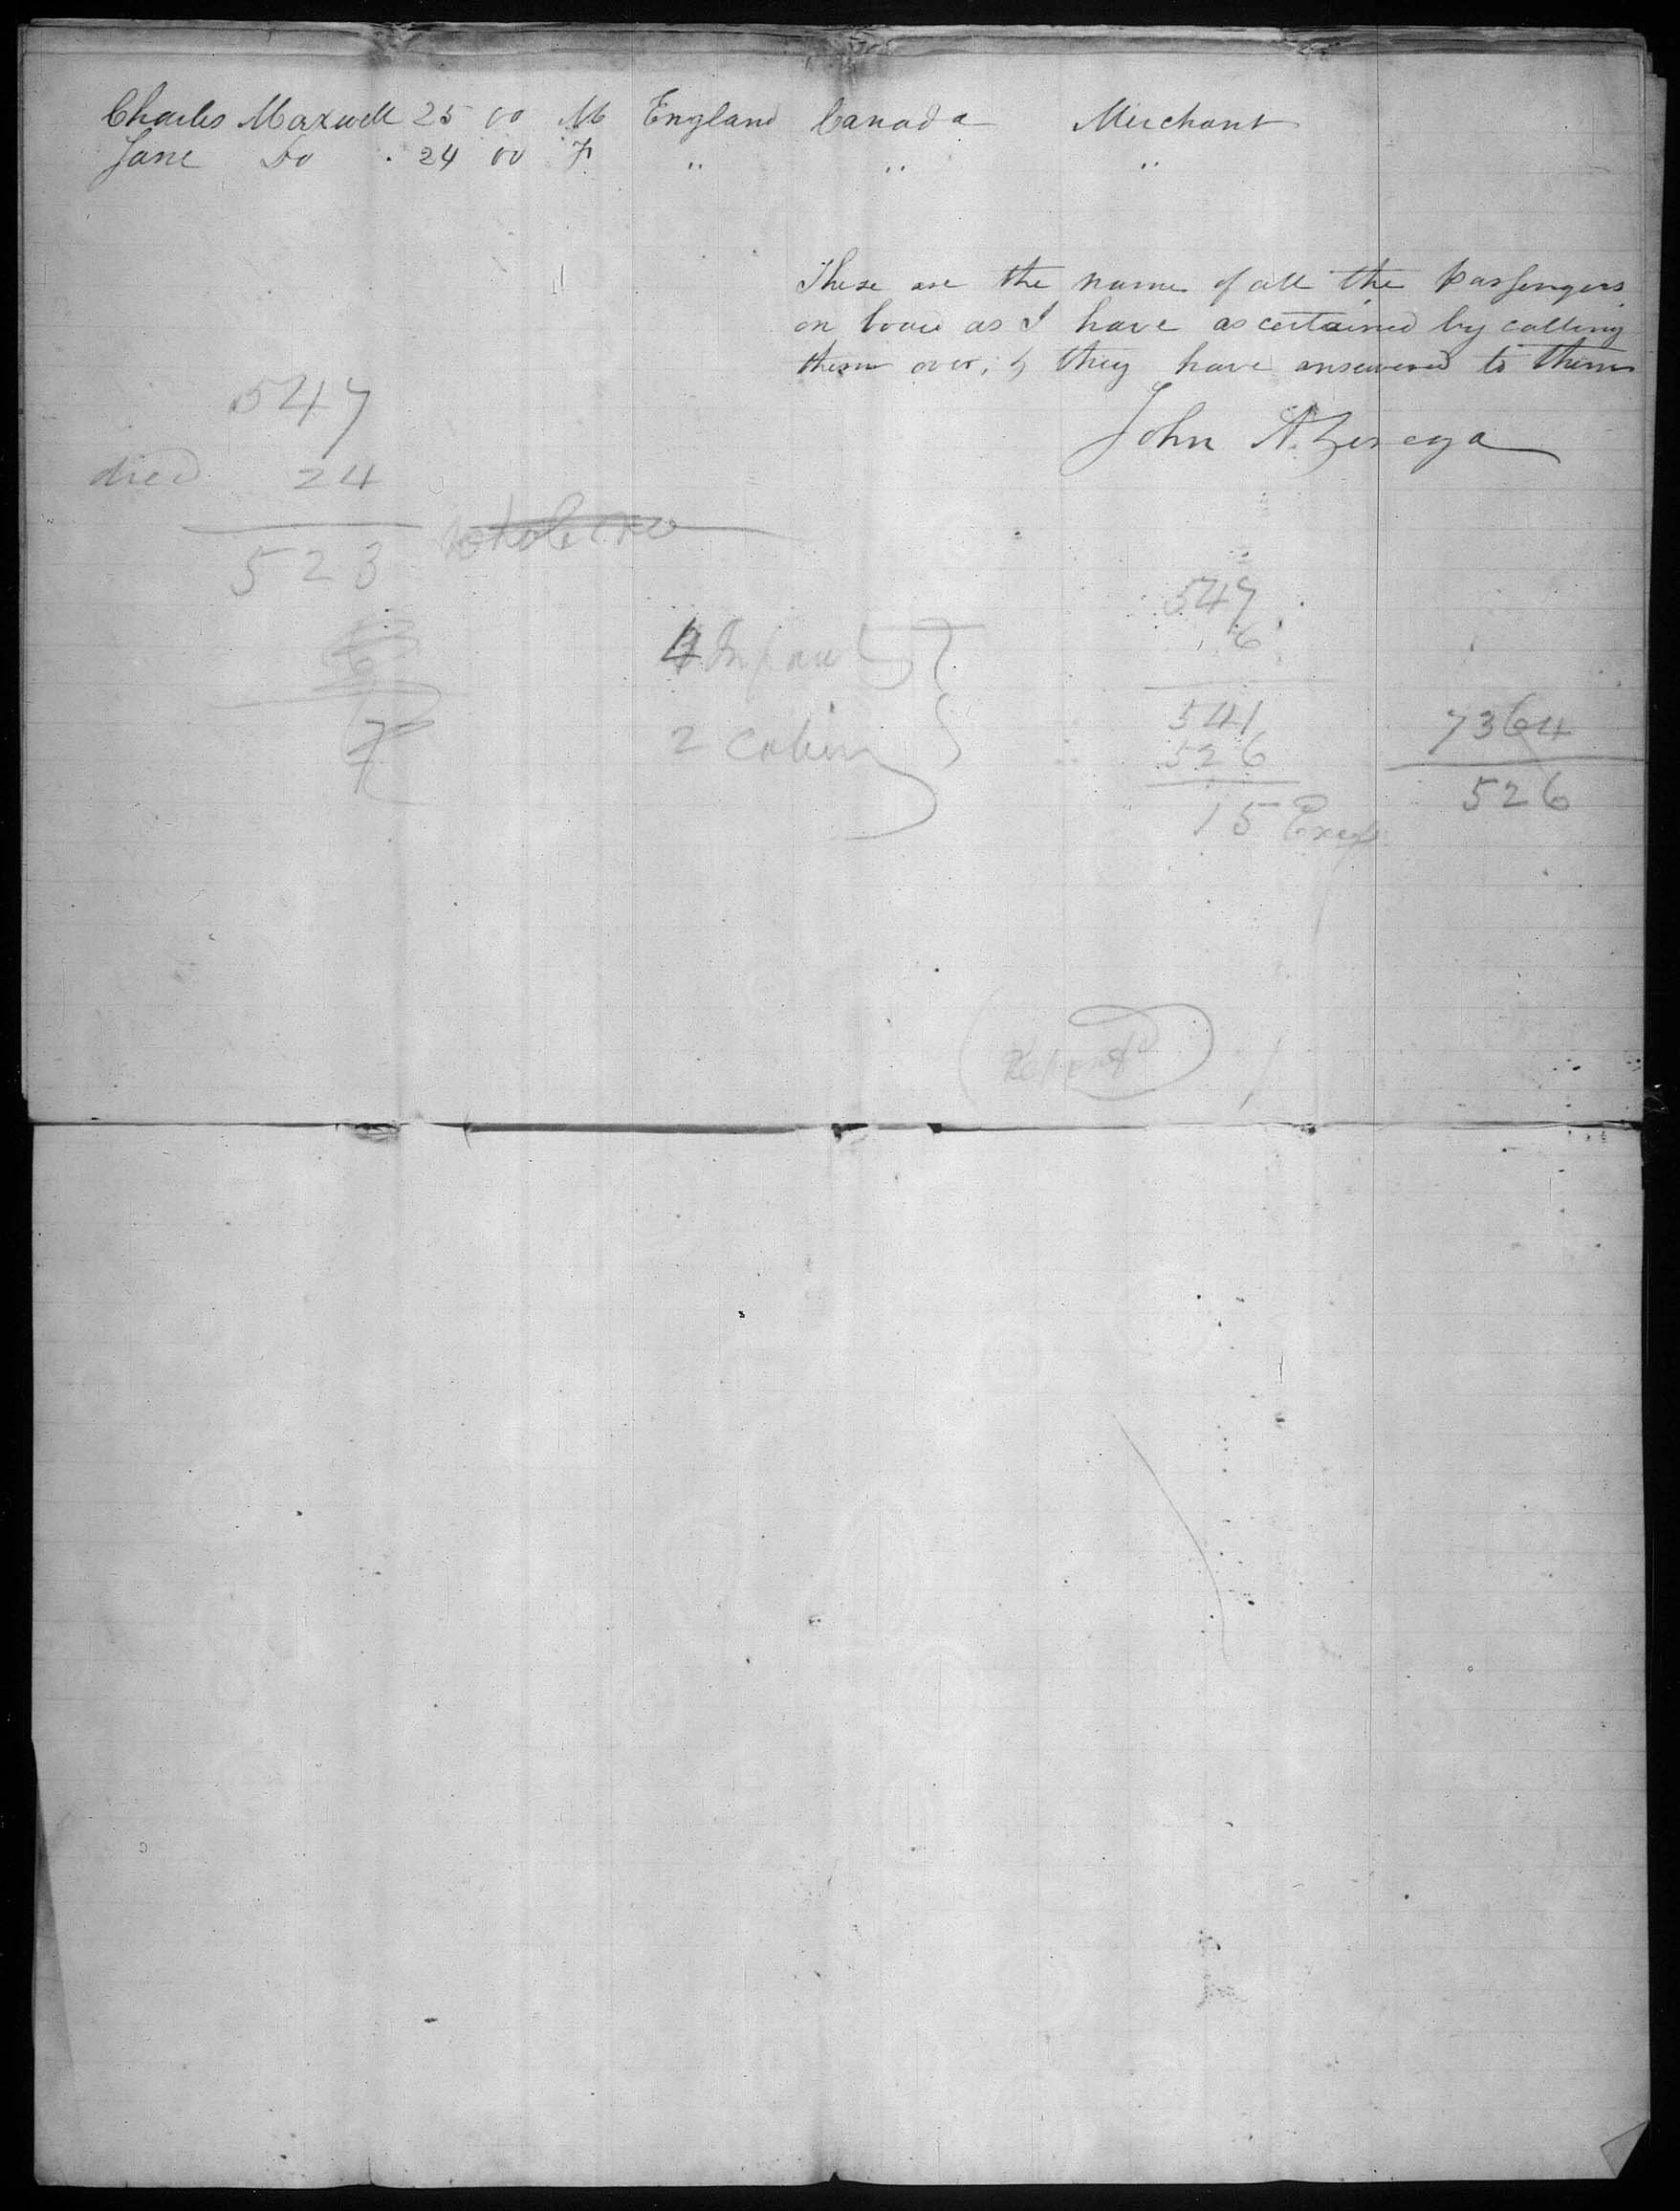 Charles Maxwell 25 00 M England Canada Merchant
Jane Do 24 00 F " " "
These are the name of all the Passengers
on board as I have ascertained by calling
them over, & they have answered to them
John A. Zerega
547
died 24
523
4 Infant
2 Cabin
547
6
541
526
15 Excess
7364
526